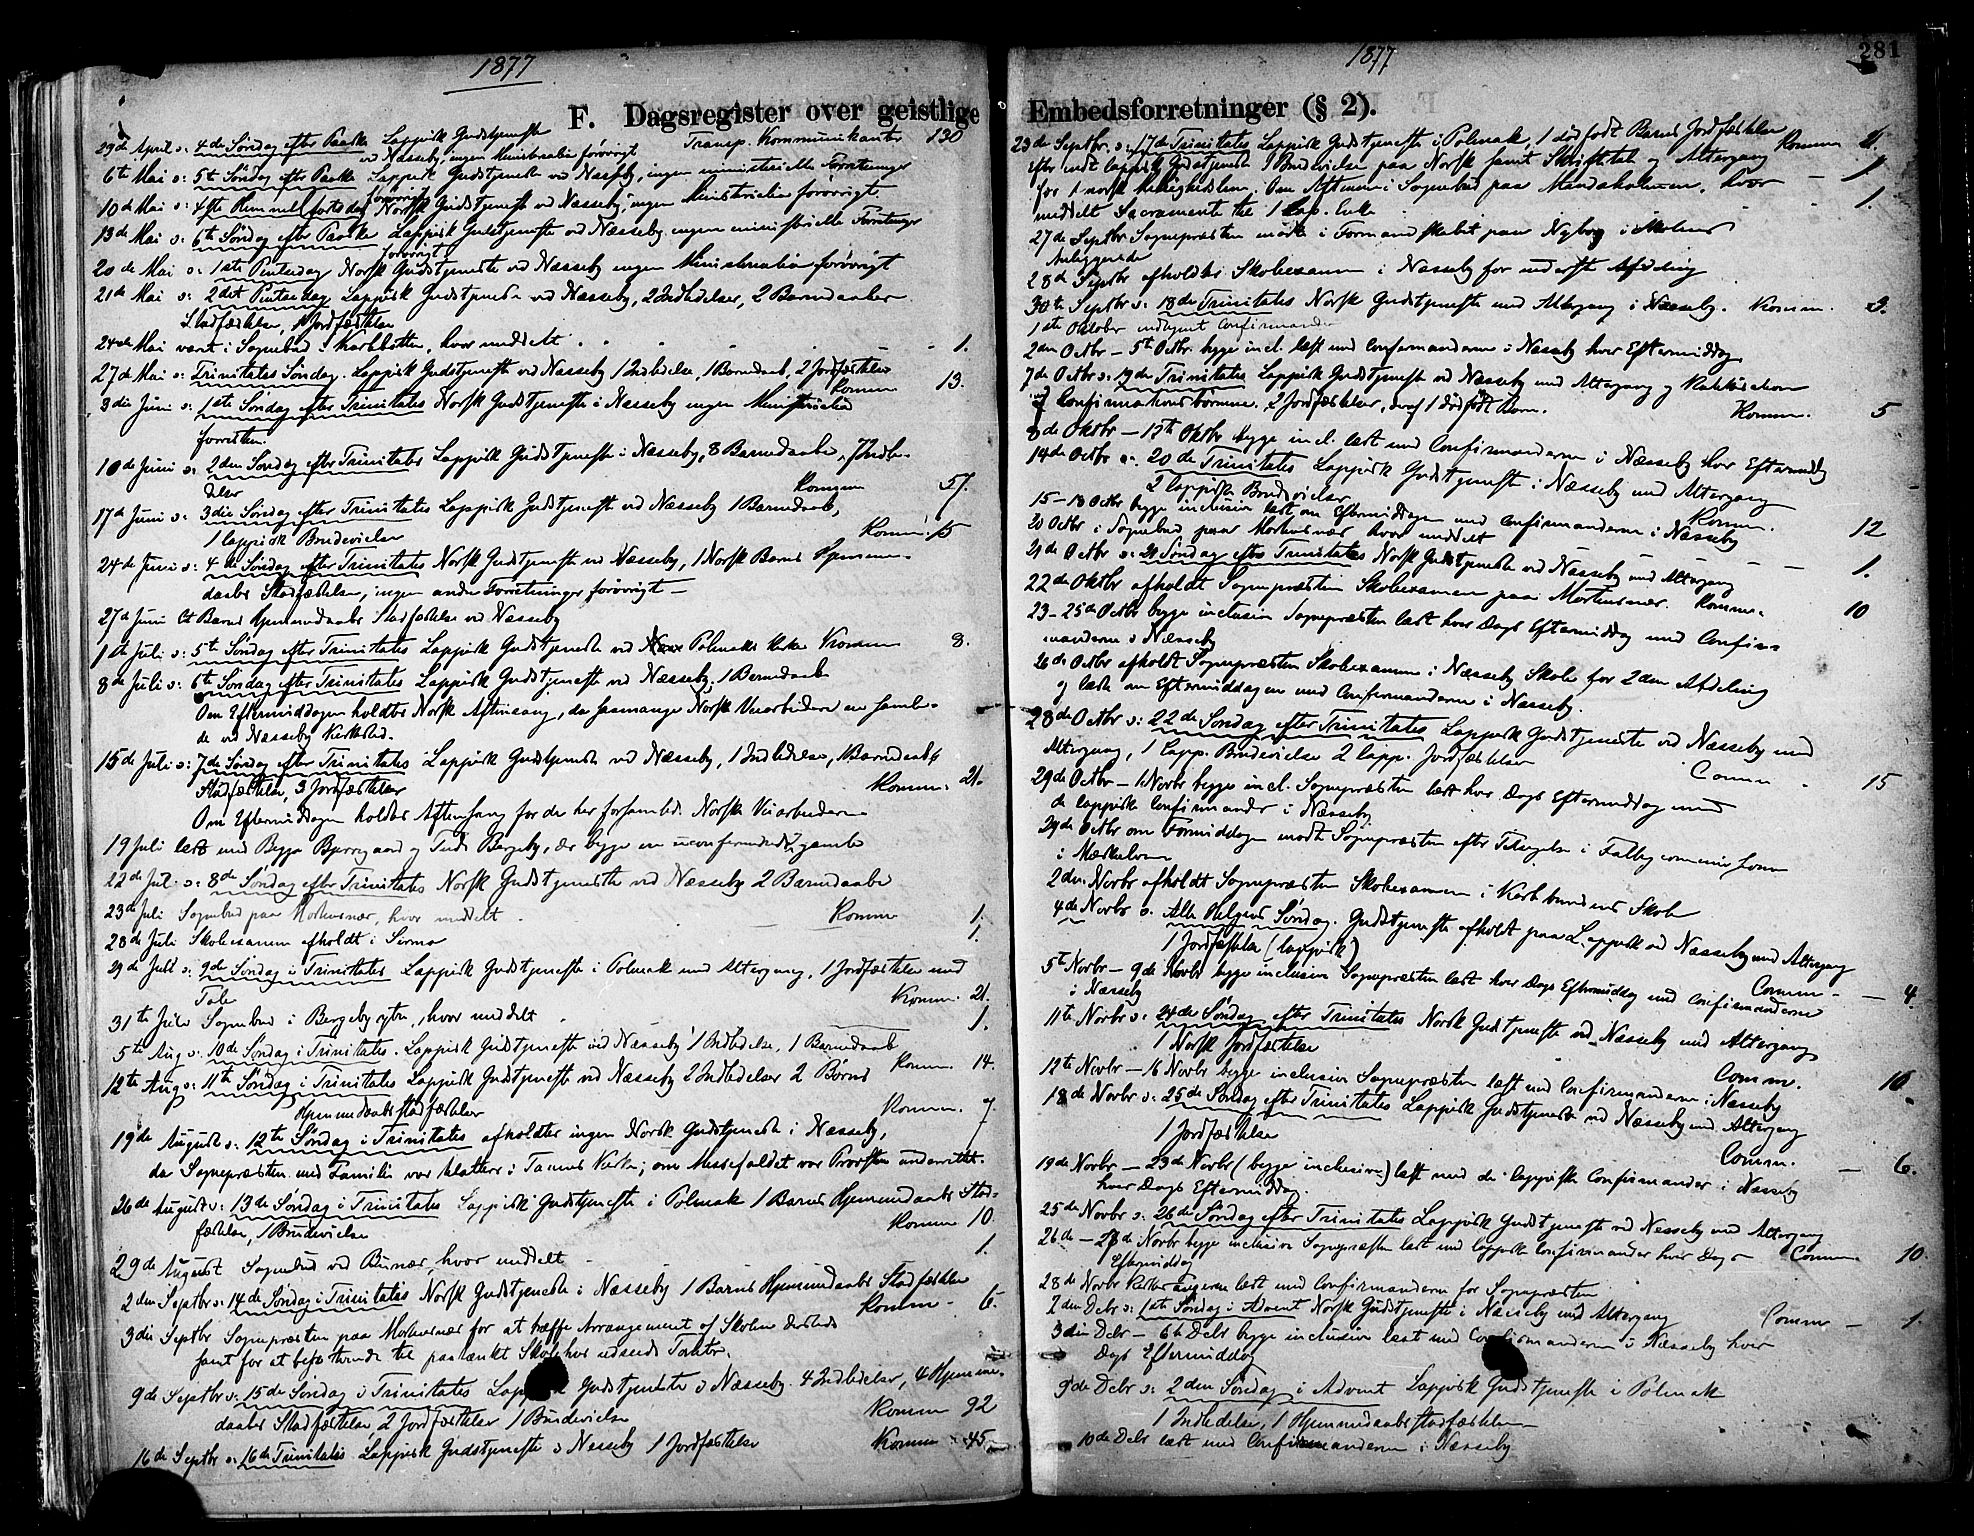 1877
F. Dagsregister over geistlige
29de April o: 4de Søndag efter Paaske Lappisk Gudstjeneste Transp. Kommunikanter 130
ved Næsseby, ingen Ministerialia forøvrigt
6te Mai o: 5te Søndag efter Paaske Lappisk Gudstjeneste ved Næsseby, ingen ministerielle Forretninger
forøvrigt
10de Mai o: Himmelfartsdag Norsk Gudstjeneste ved Næsseby, ingen Ministerialia forøvrigt
13de Mai o: 6te Søndag efter Paaske Lappisk Gudstjeneste ved Næsseby ingen ministerielle Forretninger
forøvrigt
20de Mai o: 1ste Pintsedag Norsk Gudstjeneste ved Næsseby ingen Ministerialia forøvrigt
21de Mai o: 2det Pintsedag Lappisk Gudstjeneste ved Næsseby, 2 Indledelser, 2 Barnedaaber
Stadfæstelse, Jordfæstelse
24de Mai været i Sognebud i Karlbotten, hvor meddelt 1.
27de Mai o: Trinitatis Søndag. Lappisk Gudstjeneste ved Næsseby 1 Indledelse, 1 Barnedaab, 2 Jordfæstelser
Komm 13.
3die Juni o: 1ste Søndag efter Trinitatis Norsk Gudstjeneste i Næsseby ingen Ministerialia
forresten.
10de Juni o: 2den Søndag efter Trinitatis Lappisk Gudstjeneste i Næsseby, 8 Barnedaabe, 7 Indle-
delser Komm 57.
17de Juni o: 3die Søndag efter Trinitatis Lappisk Gudstjeneste ved Næsseby 1 Barnedaab,
1 lappisk Brudevielse Komm. 15
24de Juni o: 4de Søndag efter Trinitatis Norsk Gudstjeneste ved Næsseby, 1 Norsk Barns Hjemme-
daabs Stadfæstelse, ingen andre Forretninger forøvrigt —
27de Juni Et Barns Hjemmedaabs Stadfæstelse ved Næsseby
1ste Juli o: 5te Søndag efter Trinitatis Lappisk Gudstjeneste ved Polmaks Kirke Komm 8.
8de Juli o: 6te Søndag efter Trinitatis Lappisk Gudstjeneste ved Næsseby, 1 Barnedaab
Om Eftermiddagen holdtes Norsk Aftensang, da saamange Norske Veiarbeidere ere samle-
de ved Næsseby Kirkested.
15de Juli o: 7de Søndag efter Trinitatis Lappisk Gudstjeneste ved Næsseby, 1 Indledelse, 1 Barnedaabs
Stadfæstelse, 3 Jordfæstelser Komm. 21.
Om Eftermiddagen holdtes Aftensang for de her forsamlede Norske Veiarbeidere
19 Juli læst med Bigga Bjerregaard og Bergeby, der begge ere uconfirmerede, gamle
22de Juli o: 8de Søndag efter Trinitatis Norsk Gudstjeneste ved Næsseby 2 Barnedaabe
23de Juli Sognebud paa Mortensnæs, hvor meddelt Komm 1.
28de Juli Skoleexamen afholdt i Sirma 1.
29de Juli o: 9de Søndag i Trinitatis Lappisk Gudstjeneste i Polmak med Altergang, 1 Jordfæstelse med
Tale Komm. 21.
31te Juli Sognebud i Bergeby, hvor meddelt 1.
5te Aug o: 10de Søndag i Trinitatis. Lappisk Gudstjeneste ved Næsseby 1 Indledelse, 1 Barnedaab
Komm. 14.
12te Aug o: 11te Søndag i Trinitatis Lappisk Gudstjeneste ved Næsseby 2 Indledelser 2 Børns
Hjemmedaabs stadfæstelser Komm. 7.
19de August o: 12te Søndag i Trinitatis afholdtes ingen Norsk Gudstjeneste i Næsseby,
da Sognepræsten med Familie var i Kirke; om Messefaldet var Provsten underrettet.
26de August o: 13de Søndag i Trinitatis Lappisk Gudstjeneste i Polmak 1 Barns Hjemmedaabs Stad-
fæstelse, 1 Brudevielse Komm 10.
29de August Sognebud ved Bunæs, hvor meddelt 1.
2den Septbr o: 14de Søndag i Trinitatis Norsk Gudstjeneste i Næsseby 1 Barns Hjemmedaabs Stadfæstelse
Komm — 6.
3die Septbr Sognepræsten paa Mortensnæs for at træffe Arrangement af Skolen dersteds
samt for at det til paatænkt Skolehus udseede Tomter.
9de Septbr o: 15de Søndag i Trinitatis Lappisk Gudstjeneste i Næsseby. 4 Indledelser, 4 Hjemme-
daabs Stadfæstelser, 2 Jordfæstelser 1 Brudevielse Komm 92
16de Septbr o: 16de Trinitatis Lappisk Gudstjeneste i Næsseby 1 Jordfæstelse Komm 45
1877
281
Embedsforretninger (§ 2).
23de Septbr. o: 17de Trinitatis Lappisk Gudstjeneste i Polmak, 1 dødfødt Barns Jordfæstelse
efter endt lappisk Gudstjeneste 1 Brudevielse paa Norsk samt Skriftetale og Altergang Komm 21.
for 1 norsk Om Aftenen i Sognebud paa Mandsholmen, hvor — 1.
meddelt Sacramentet til 1 Lap. Enke 1.
27de Septbr Sognepræsten møtte i Formandskabet paa Nyborg i Skolens
Anliggender
28de Septbr afholdtes Skoleexamen i Næsseby for nederste Afdeling
30te Septbr o: 18de Trinitatis Norsk Gudstjeneste med Altergang i Næsseby. Komm. 3.
1ste Oktober Confirmander
2den Octbr — 5te Octbr. begge incl. læst med Confirmanderne i Næsseby hver Eftermiddag
7de Octbr o: 19de Trinitatis Lappisk Gudstjeneste ved Næsseby med Altergang og Katekisation
med Confirmationsbørnene. 2 Jordfæstelser, deraf 1 dødfødt Barn. Komm. 5
8de Oktbr — 12te Oktbr begge incl. læst med Confirmanderne i Næsseby hver Eftermiddag
14de Octbr o: 20de Trinitatis Lappisk Gudstjeneste i Næsseby med Altergang
2 lappiske Brudevielser Komm. 12
15 — 18 Octbr begge inclusive læst om Eftermiddagen med Confirmanderne i Næsseby
20 Octbr i Sognebud paa Mortensnæs hvor meddelt — — 1.
21de Octbr o: 21 Søndag efter Trinitatis Norsk Gudstjeneste ved Næsseby med Altergang
Komm. 10
22de Oktbr afholdt Sognepræsten Skoleexamen paa Mortensnæs.
23 — 25de Octbr begge inclusive Sognepræsten læst hver Dags Eftermiddag med Confir-
manderne i Næsseby
26de Octbr afholdt Sognepræsten Skoleexamen i Næsseby Skole for 2den Afdeling
og læste om Eftermiddagen med Confirmanderne i Næsseby.
28de Octbr o: 22de Søndag efter Trinitatis Lappisk Gudstjeneste ved Næsseby med
Altergang, 1 Lapp. Brudevielse 2 lapp. Jordfæstelser Comm 15
29de Octbr — 1 Novbr begge incl. Sognepræsten læst hver Dags Eftermiddag med
de lappiske Confirmander i Næsseby
29de Octbr om Formiddagen mødt Sognepræsten efter Tilsigelse i
i
2den Novbr afholdt Sognepræsten Skoleexamen i Karlbundens Skole
4de Novbr o: Alle Helgens Søndag. Gudstjeneste afholdt paa Lappisk ved Næsseby med Altergang
1 Jordfæstelse (lappisk) Comm — — 4
5te Novbr — 9de Novbr begge inclusive Sognepræsten læst hver Dags Eftermiddag med Confirmanderne
i Næsseby
11te Novbr o: 24de Søndag efter Trinitatis Norsk Gudstjeneste ved Næsseby med Altergang
1 Norsk Jordfæstelse Comm. 10.
12te Novbr — 16 Novbr begge inclusive Sognepræsten læst med Confirmanderne i Næsseby
18de Novbr o: 25de Søndag efter Trinitatis Lappisk Gudstjeneste ved Næsseby med Altergang
1 Jordfæstelse Comm. — 6.
19de Novbr — 23de Novbr (begge inclusive) læst med de lappiske Confirmander i Næsseby
hver Dags Eftermiddag.
25de Novbr o: 26de Søndag efter Trinitatis Lappisk Gudstjeneste ved Nesseby med Altergang
Comm 10.
26de — 28de Novbr begge inclusive Sognepræsten læst med lappiske Confirmander hver Dags
Eftermiddag
28de Novbr Kirkesangeren læst med Confirmanderne for Sognepræsten
2den Debr o: 1ste Søndag i Advent Norsk Gudstjeneste i Næsseby med Altergang Comm — 1.
3die Debr — 6te Debr begge inclusive læst med Confirmanderne i Næsseby hver
Dags Eftermiddag
9de Debr o: 2den Søndag i Advent Lappisk Gudstjeneste i Polmak
1 Indledelse, 1 Hjemmedaabs stadfæstelse
10de Debr læst med Confirmanderne i Næsseby